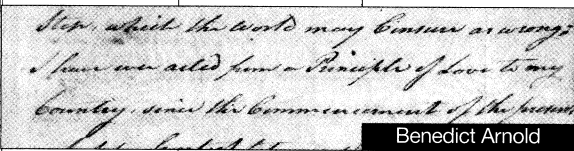 Step, which the World may Censure as wrong;
I have ever acted from a Principle of Love to my
Country, since the Commencement of the present
Benedict Arnold